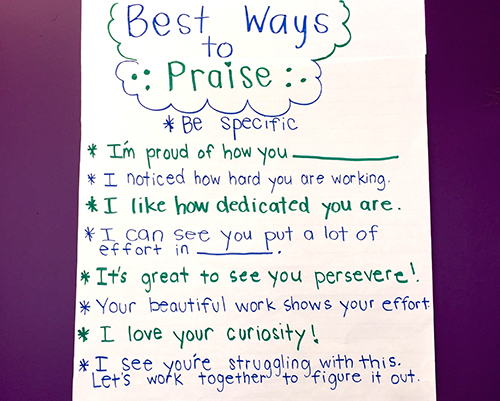 Best Ways
to
Praise
* Be specific
* I'm proud of how you ________
* I noticed how hard you are working.
* I like how dedicated you are.
* I can see you put a lot of
effort in ________.
* It's great to see you persevere!
* Your beautiful work shows your effort.
* I love your curiosity!
* I see you're struggling with this.
Let's work together to figure it out.